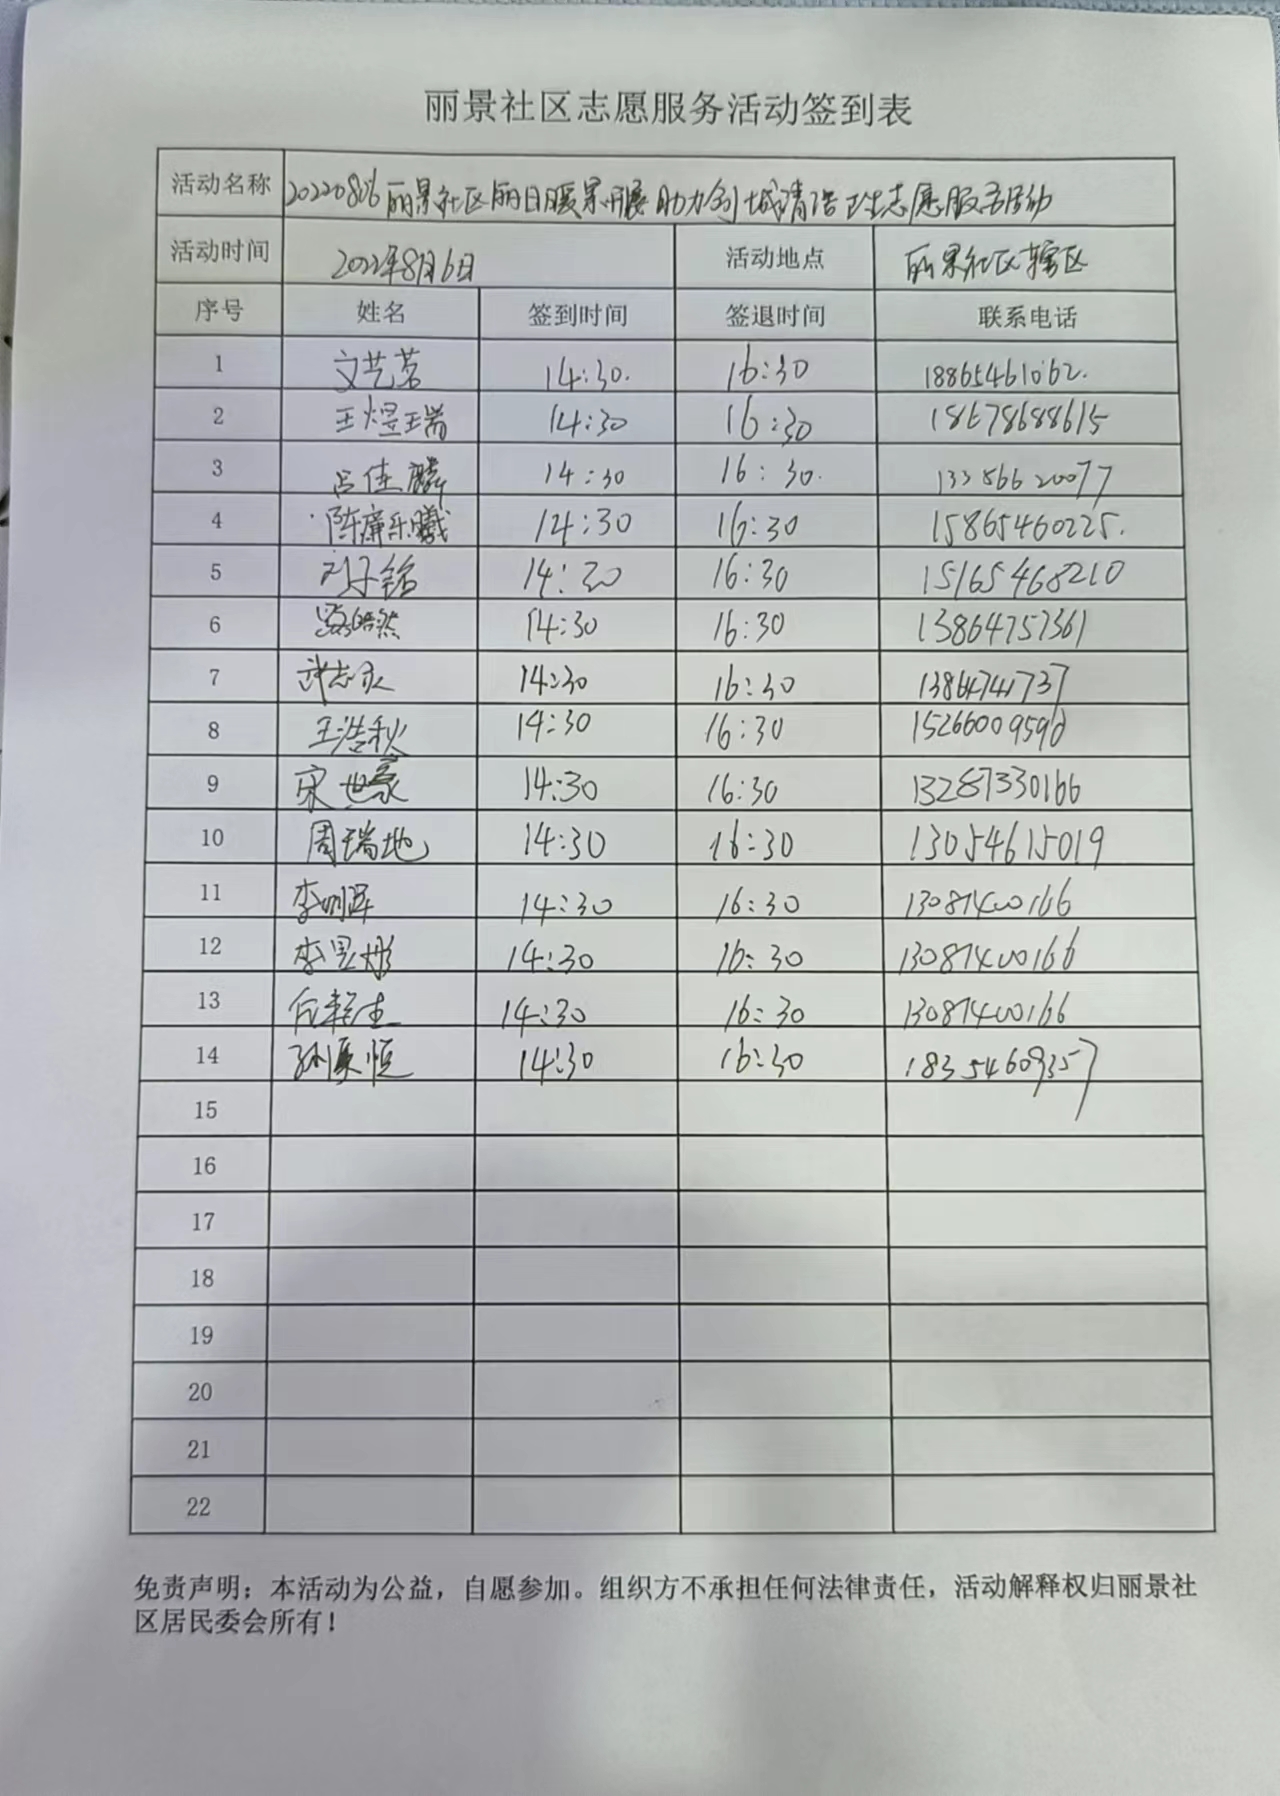 丽景社区志愿服务活动签到表
活动名称 20220806丽景社区丽日暖景开展助力创城清洁卫生志愿服务活动
活动时间 2022年8月6日 活动地点 丽景社区辖区
序号 姓名 签到时间 签退时间 联系电话
1 文艺茗 14:30. 16:30 18865461062.
2 王煜瑞 14:30 16:30 18678688615
3 吕佳麟 14:30 16:30. 13356620077
4 陈廉乐曦 14:30 16:30 15865460225.
5 刘子铭 14:30 16:30 15165468210
6 14:30 16:30 13864757361
7 武志永 14:30 16:30 13864741737
8 王浩秋 14:30 16:30 15266009590
9 宋世豪 14:30 16:30 13287330166
10 周瑞地 14:30 16:30 13054615019
11 李明泽 14:30 16:30 13087400166
12 李昱彤 14:30 16:30 13087400166
13 14:30 16:30 13087400166
14 14:30 16:30 18354609357
15
16
17
18
19
20
21
22
免责声明：本活动为公益，自愿参加。组织方不承担任何法律责任，活动解释权归丽景社
区居民委会所有！